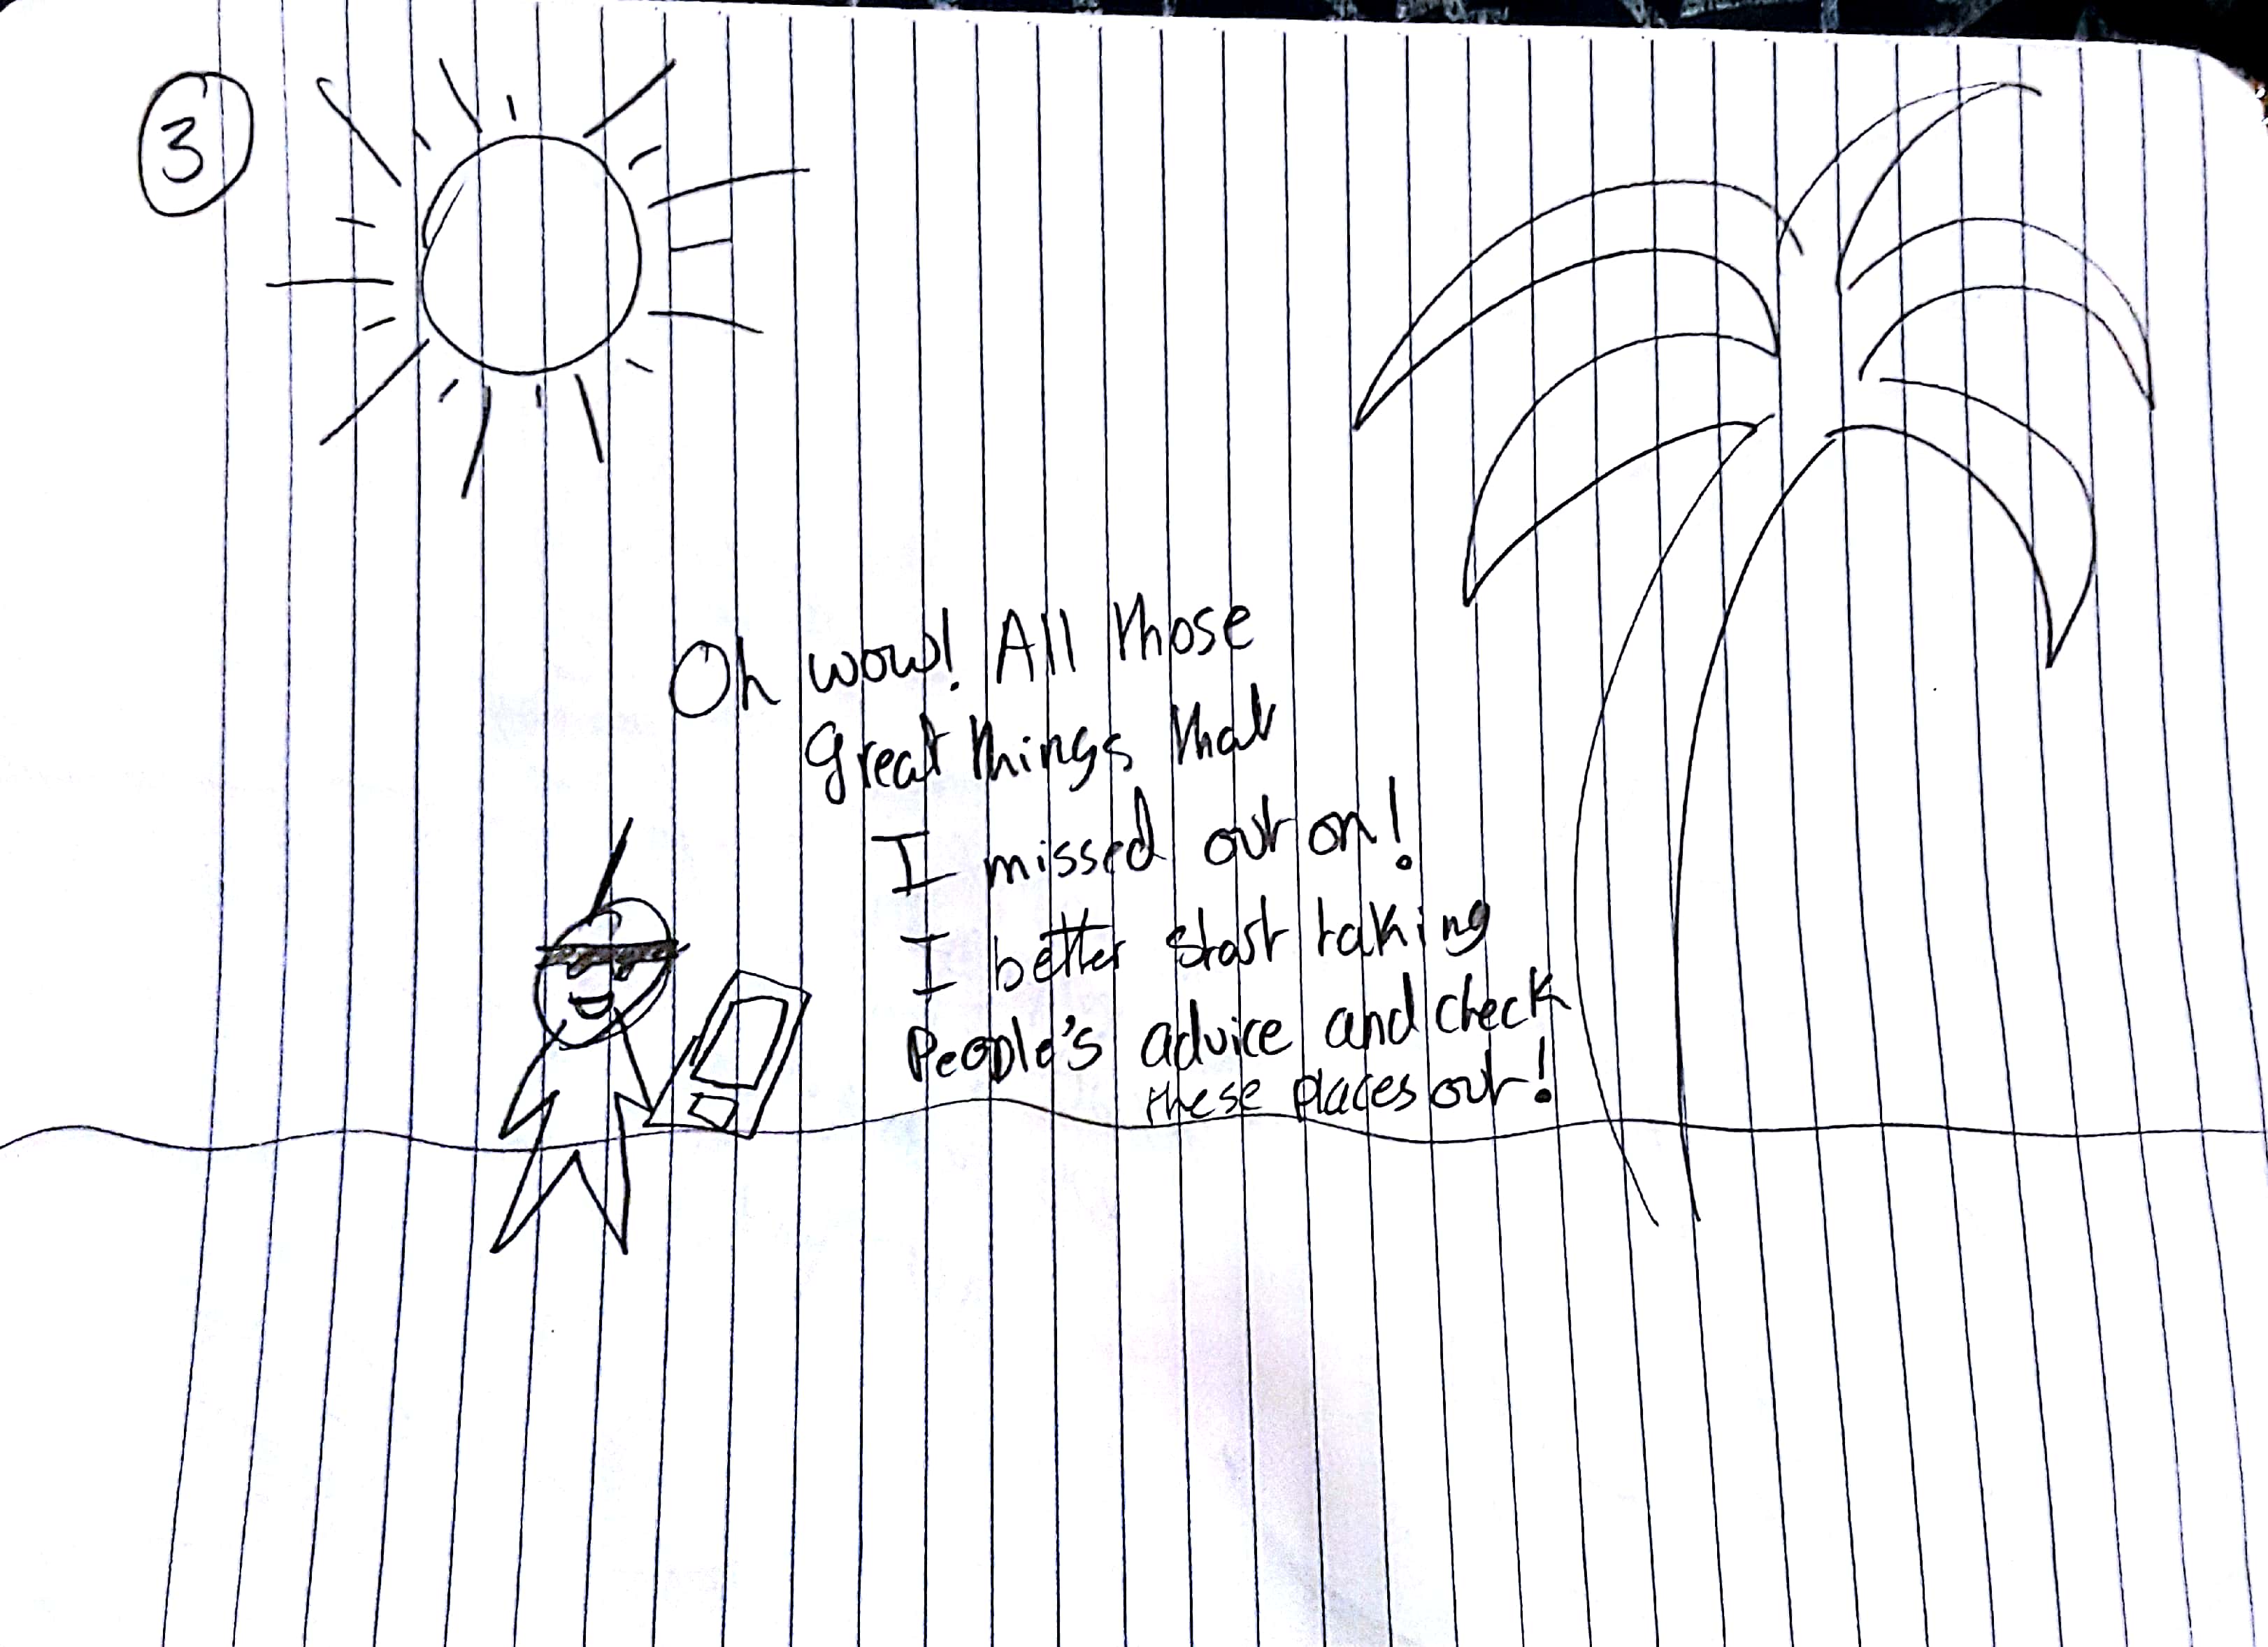 3
Oh wow! All those
great things that
I missed out on!
I better start taking
People's advice and check
these places out!